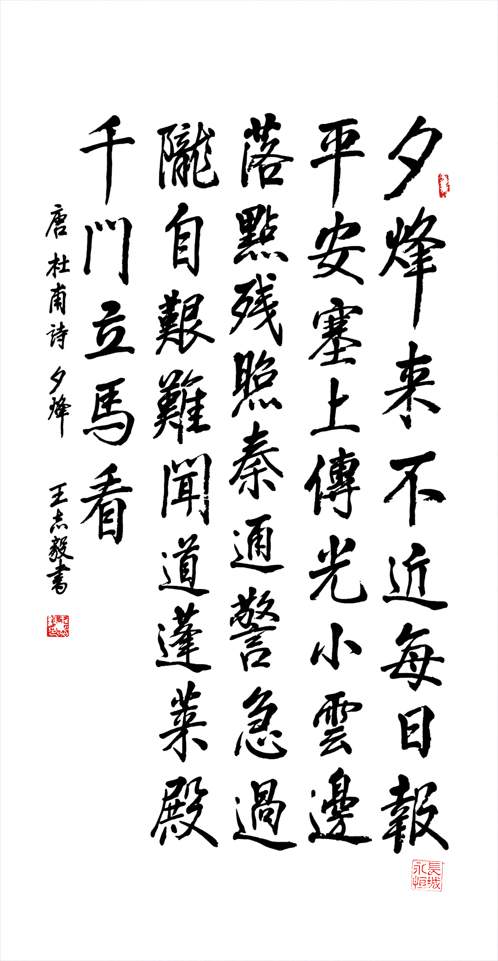 夕烽来不近每日報
平安塞上傳光小雲邊
落點残照秦通警急過
隴自艱難聞道蓬莱殿
千門立馬看
唐杜甫詩夕烽 王志毅書
長城永恒